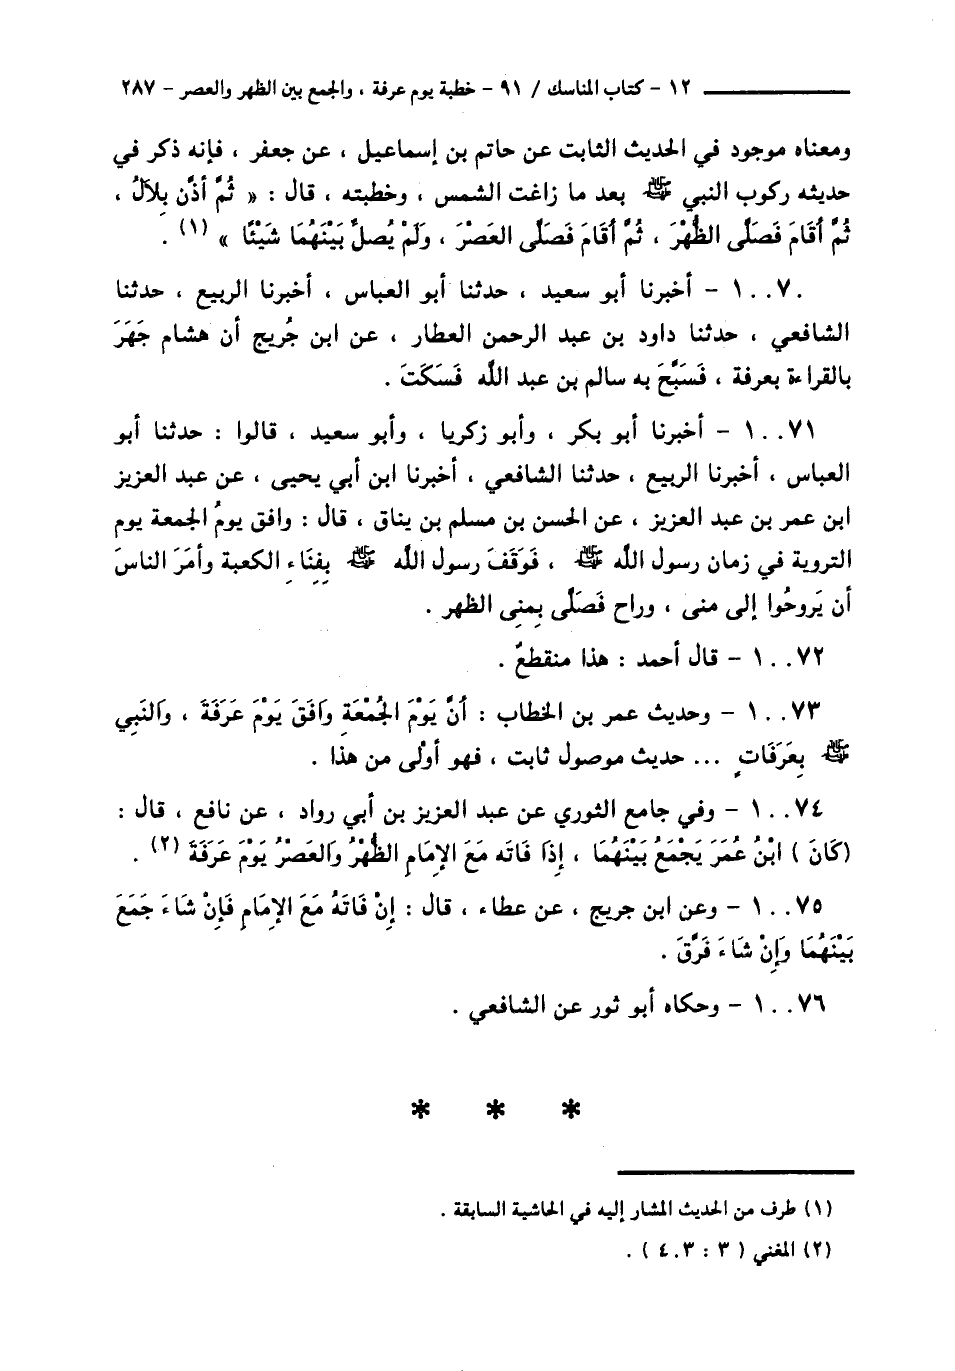 ١٢ - كتاب المناسك / ٩١ - خطبة يوم عرفة ، والجمع بين الظهر والعصر - ٢٨٧
ومعناه موجود في الحديث الثابت عن حاتم بن إسماعيل ، عن جعفر ، فإنه ذكر في
حديثه ركوب النبي ﷺ بعد ما زاغت الشمس ، وخطبته ، قال : « ثُمَّ أذَّن بِلاَلُ ،
ثُمَّ أقَامَ فَصَلَّى الظُهْرَ ، ثُمَّ أقَامَ فَصَلَّى العَصْرَ ، وَلَمْ يُصلِّ بَيْنَهُمَا شَيْئًا » (١) .
١٠٠٧٠ - أخبرنا أبو سعيد ، حدثنا أبو العباس ، أخبرنا الربيع ، حدثنا
الشافعي ، حدثنا داود بن عبد الرحمن العطار ، عن ابن جُريج أن هشام جَهَرَ
بالقراءة بعرفة ، فَسَبَّحَ به سالم بن عبد اللَّه فَسَكَتَ .
١٠٠٧١ - أخبرنا أبو بكر ، وأبو زكريا ، وأبو سعيد ، قالوا : حدثنا أبو
العباس ، أخبرنا الربيع ، حدثنا الشافعي ، أخبرنا ابن أبي يحيى ، عن عبد العزيز
ابن عمر بن عبد العزيز ، عن الحسن بن مسلم بن يناق ، قال : وافق يومُ الجمعة يوم
التروية في زمان رسول اللَّه ﷺ ، فَوَقَفَ رسول اللَّه ﷺ بِفِنَاءِ الكعبة وأمَرَ الناسَ
أن يَروحُوا إلى منى ، وراح فَصَلَّى بِمنِى الظهر .
١٠٠٧٢ - قال أحمد : هذا منقطعُ .
١٠٠٧٣ - وحديث عمر بن الخطاب : أنَّ يَوْمَ الجُمْعَةِ وَافَقَ يَوْمَ عَرَفَةَ ، وَالنَبِي
ﷺ بِعَرَفَاتٍ ... حديث موصول ثابت ، فهو أوْلى من هذا .
١٠٠٧٤ - وفي جامع الثوري عن عبد العزيز بن أبي رواد ، عن نافع ، قال :
(كَانَ ) ابْنُ عُمَرَ يَجْمَعُ بَيْنَهُمَا ، إِذَا فَاتَه مَعَ الإِمَامِ الظُهْرُ وَالعَصْرُ يَوْمَ عَرَفَةَ (٢) .
١٠٠٧٥ - وعن ابن جريج ، عن عطاء ، قال : إنْ فَاتَهُ مَعَ الإِمَامِ فَإِنْ شَاءَ جَمَعَ
بَيْنَهُمَا وَإِنْ شَاءَ فَرَّقَ .
١٠٠٧٦ - وحكاه أبو ثور عن الشافعي .
* * *
(١) طرف من الحديث المشار إليه في الحاشية السابقة .
(٢) المغني ( ٣ : ٤٠٣ ) .